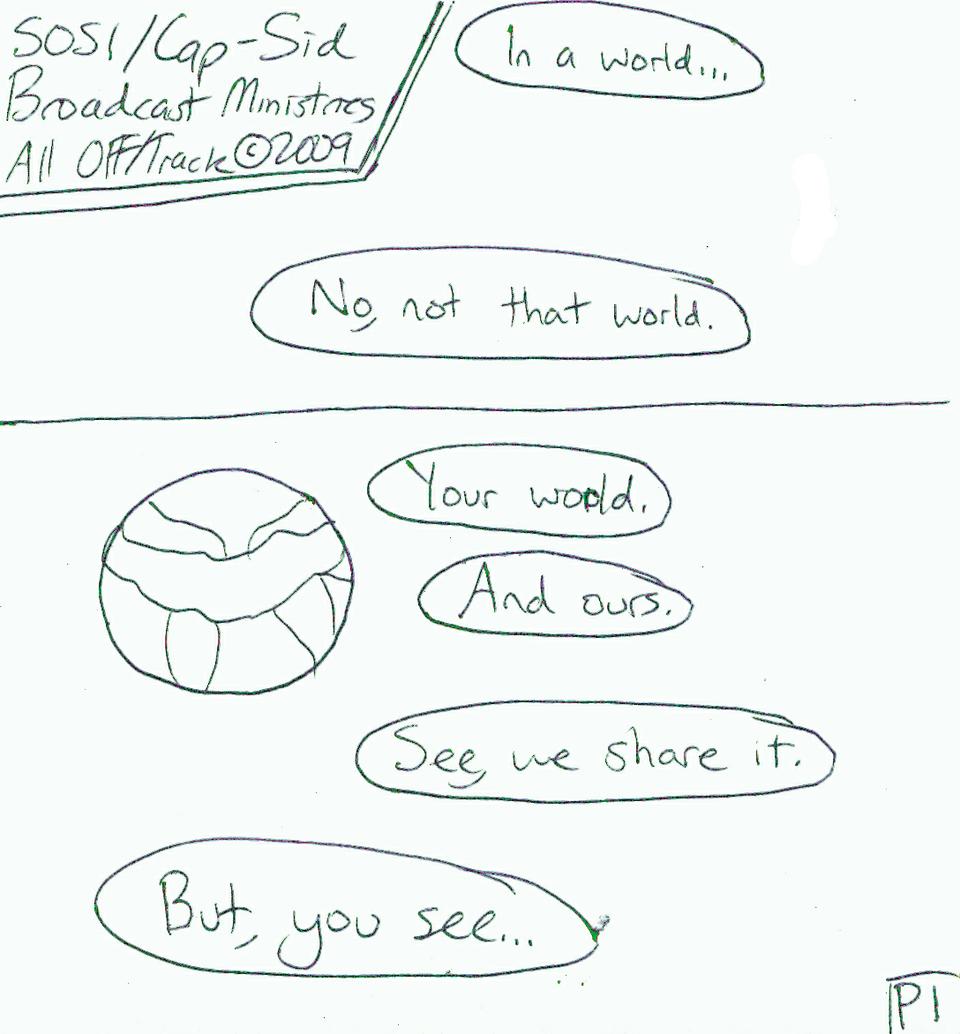 SOSI/Cap-Sid
Broadcast Ministries
All Off/Track©2009
In a world...
No, not that world.
Your world.
And ours.
See, we share it.
But, you see...
P1